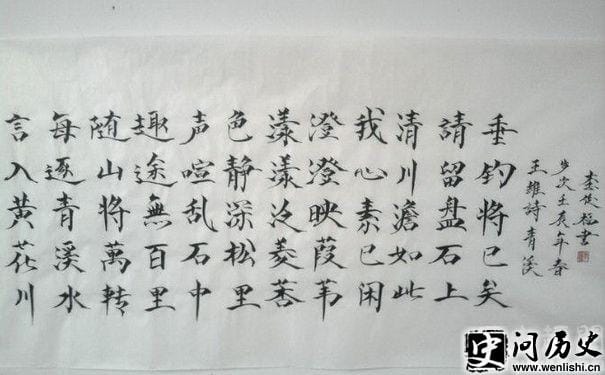 言入黄花川
每逐青溪水
随山将萬转
趣途無百里
声喧乱石中
色静深松里
漾漾泛菱莕
澄澄映葭苇
我心素已闲
清川澹如此
請留盘石上
垂钓将已矣
王维詩青溪
岁次壬辰年春
李俊书
史问历史
www.wenlishi.cn